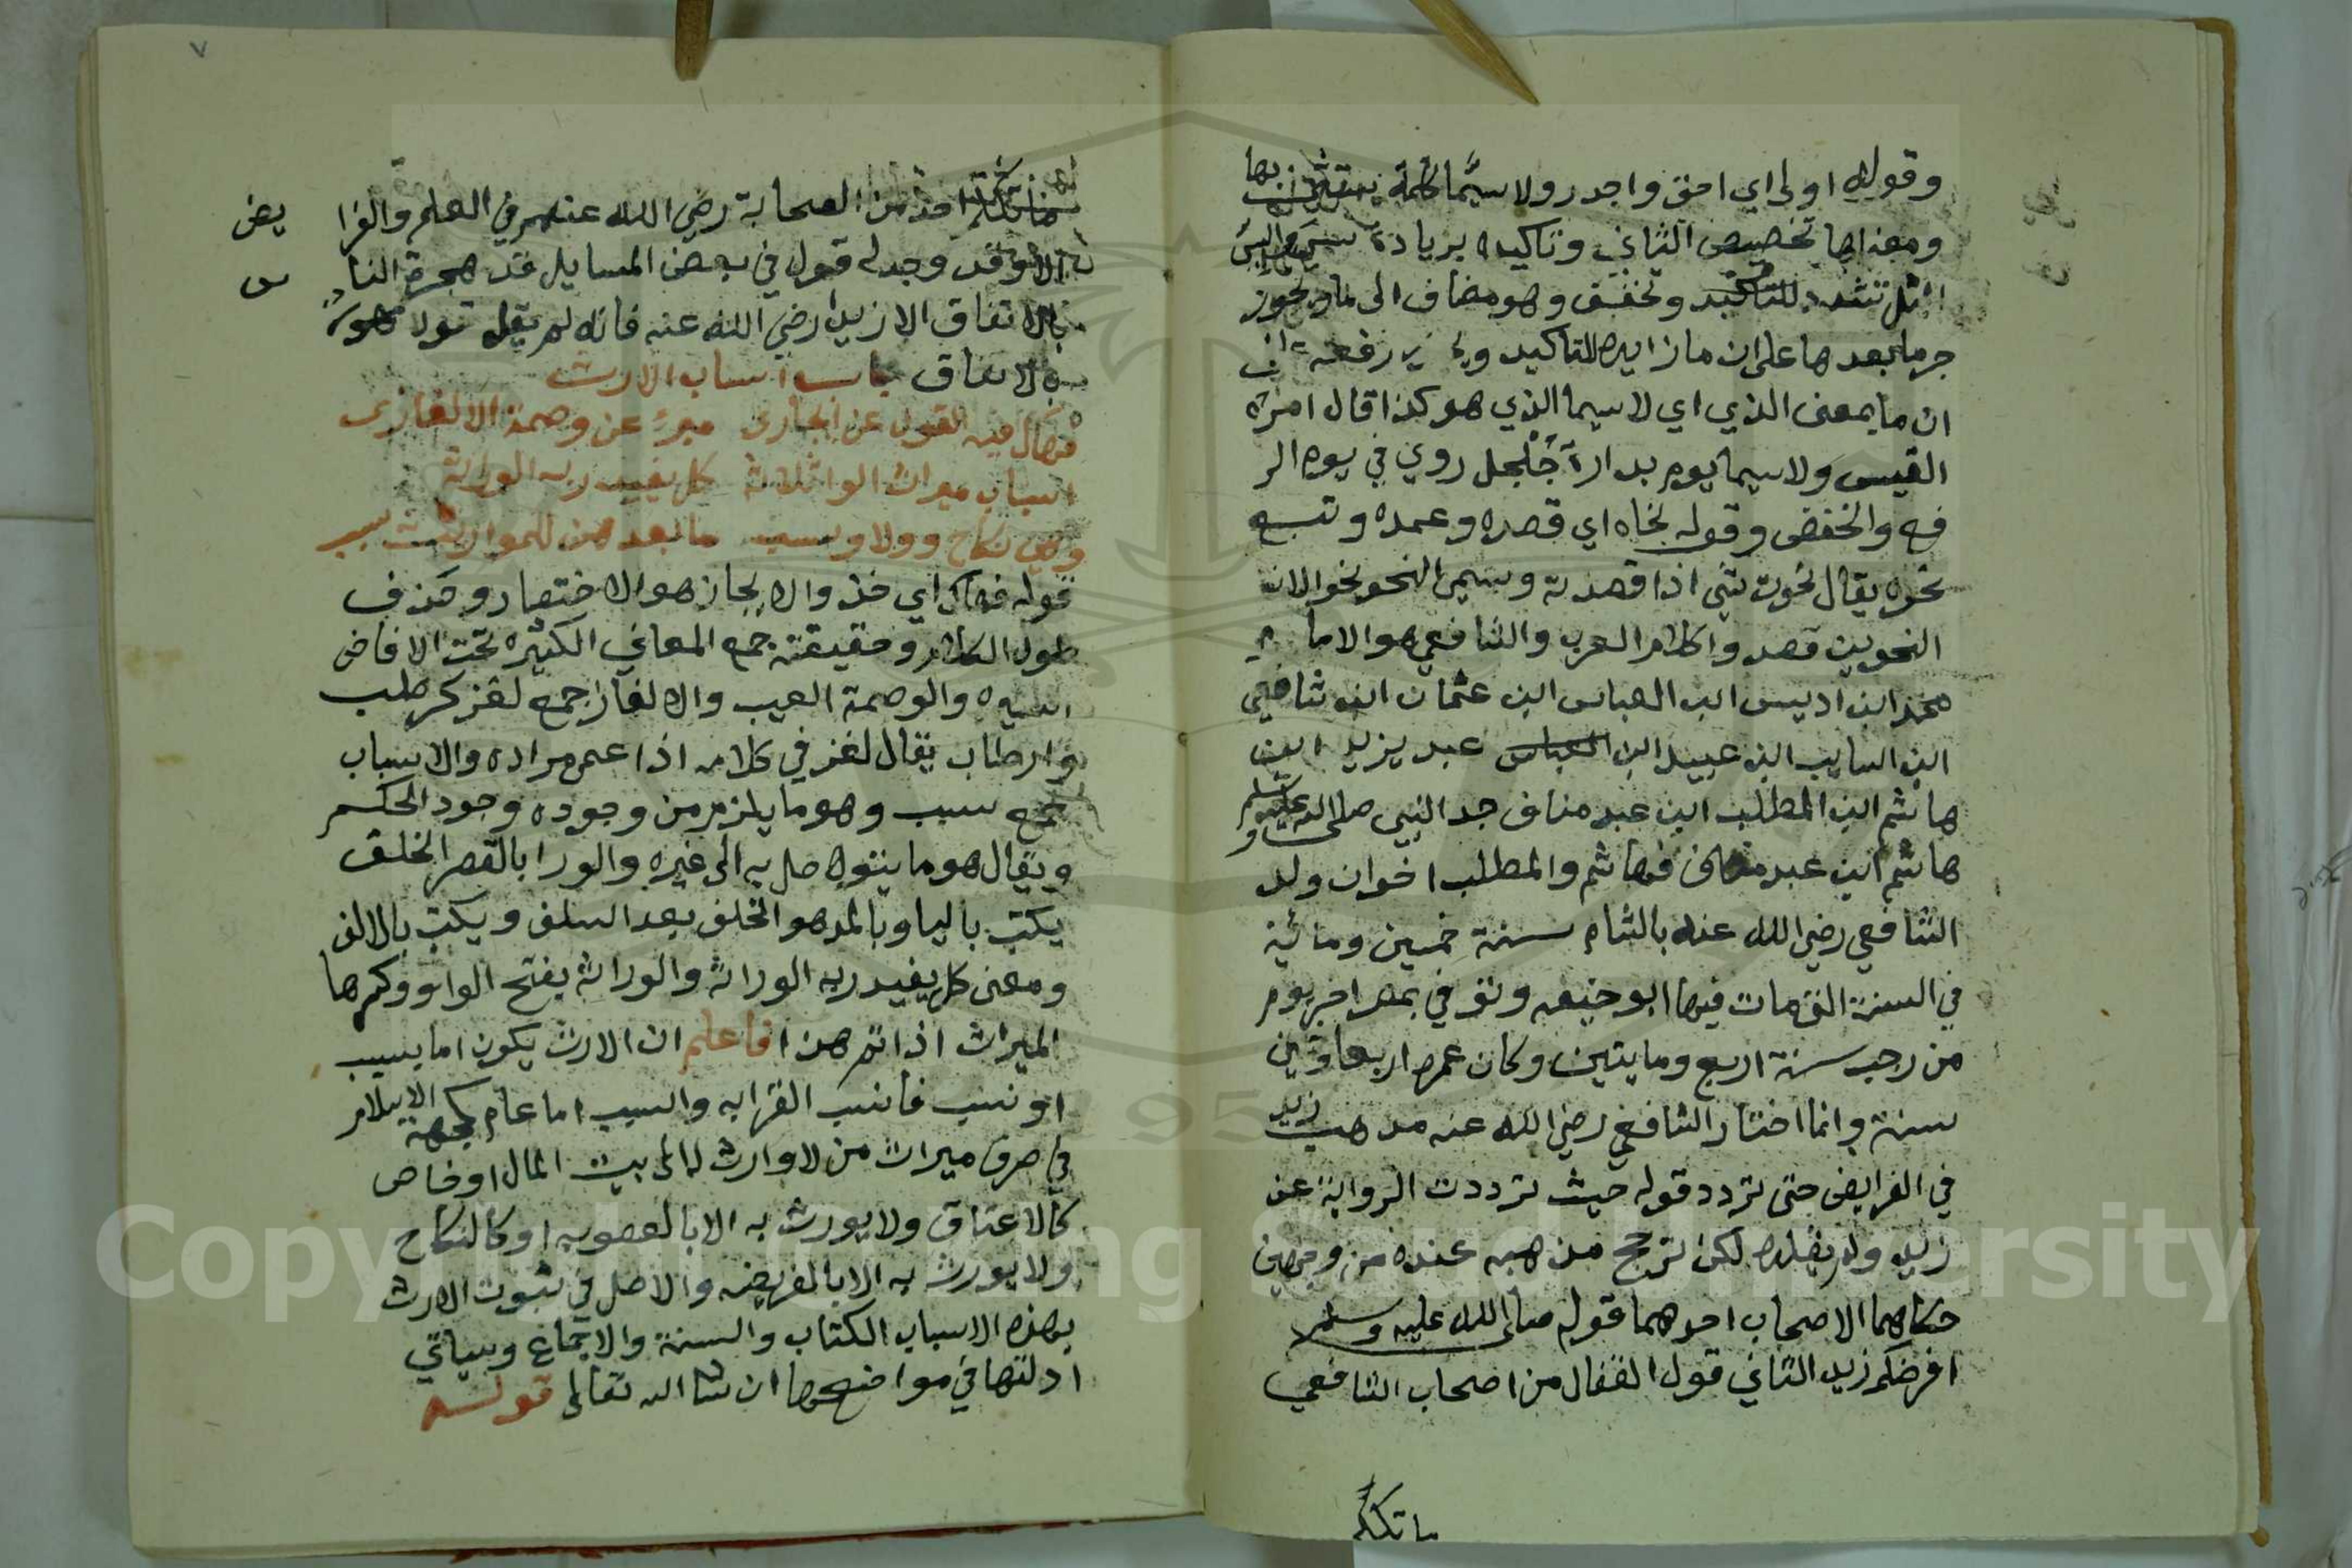 وقوله اولى اي احق واجدر ولا سيما كلمة بها
ومعناها تخصيص الثاني وتاكيده بزيادة
المثل تشدد للتاكيد وتخفف وهو مضاف الى ما ويجوز
جر ما بعدها على ان ما زايدة للتاكيد رفعه
ان ما بمعنى الذي اي لا سيما الذي هو كذا قال امرء
القيس ولا سيما يوم بدارة جلجل روي في يوم الر
فع والخفض وقوله نحاه اي قصده وعمده وتبع
نحوه يقال نحوت شي اذا قصدته وسمي النحو نحوا لان
النحويين قصدوا كلام العرب والشافعي هو الامام
محمد ابن ادريس ابن العباس ابن عثمان ابن شافعي
ابن السايب ابن عبيد ابن عبد يزيد ابن
هاشم ابن المطلب ابن عبد مناف جد النبي صلى الله عليه وسلم
هاشم ابن عبد مناف فهاشم والمطلب اخوان ولد
الشافعي رضي الله عنه بالشام سنة خمسين ومائية
في السنة التي مات فيها ابو حنيفه وتوفي بمصر اخر يوم
من رجب سنة اربع ومايتين وكان عمره اربعا وخمسين
سنة وانما اختار الشافعي رضي الله عنه مذهب زيد
في الفرايض حتى تردد قوله حيث ترددت الرواية عن
زيد ولم يقلده لكن ترجح مذهبه عنده من وجهين
حكاهما الاصحاب احدهما قوله صلى الله عليه وسلم
افرضكم زيد الثاني قول القفال من اصحاب الشافعي
ما تكلم
٧
ما تكلم احد من الصحابة رضي الله عنهم في العلم والفرا يض
الا وقد وجد له قول في بعض المسايل قد هجره النا س
بالاتفاق الا زيدا رضي الله عنه فانه لم يقل قولا
بالاتفاق باب اسباب الارث
فهاك فيه القول عن ايجازى مبرءً عن وصمة الالغازى
اسباب ميراث الورا ثلاثة كل يفيد ربه الوراثة
وهي نكاح وولا ونسب ما بعدهن للمواريث سبب
قوله فهاك اي خذ والايجاز هو الاختصار وحذف
طول الكلام وحقيقته جمع المعاني الكثيره تحت الالفاض
اليسيره والوصمة العيب والالغاز جمع لغز كرطب
وارطاب يقال لغز في كلامه اذا عمى مراده والاسباب
جمع سبب وهو ما يلزم من وجوده وجود الحكم
ويقال هو ما يتوصل به الى غيره والورا بالقصر الخلق
يكتب باليا وبالمد هو الخلف بعد السلف ويكتب بالالف
ومعنى كل يفيد ربه الوراثة والوراثة بفتح الواو وكسرها
الميراث اذا تم هذا فاعلم ان الارث يكون اما بسبب
او نسب فانسب القرابه والسبب اما عام كجهة الاسلام
في صرف ميراث من لا وارث له الى بيت المال او خاص
كالاعتاق ولا يورث به الا بالعصوبه او كالنكاح
ولا يورث به الا بالفريضه والاصل في ثبوت الارث
بهذه الاسباب الكتاب والسنة والاجماع وسياتي
ادلتها في مواضعها ان شا الله تعالى قوله
Copyright © King Saud University
195